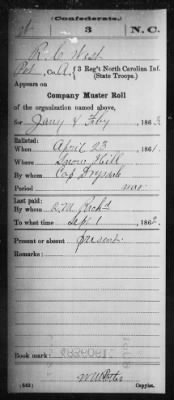 Confederate.
3 N.C.
R. C. West
Pvt, Co. A, 3 Reg't North Carolina Inf.
(State Troops.)
Appears on
Company Muster Roll
of the organization named above,
for Jany & Feby, 1863
Enlisted:
When April 23, 1861.
Where Snow Hill
By whom Cap Drysdale
Period war
Last paid:
By whom
To what time Sept 1, 1862.
Present or absent present
Remarks:
Book mark:
(642) Copyist.